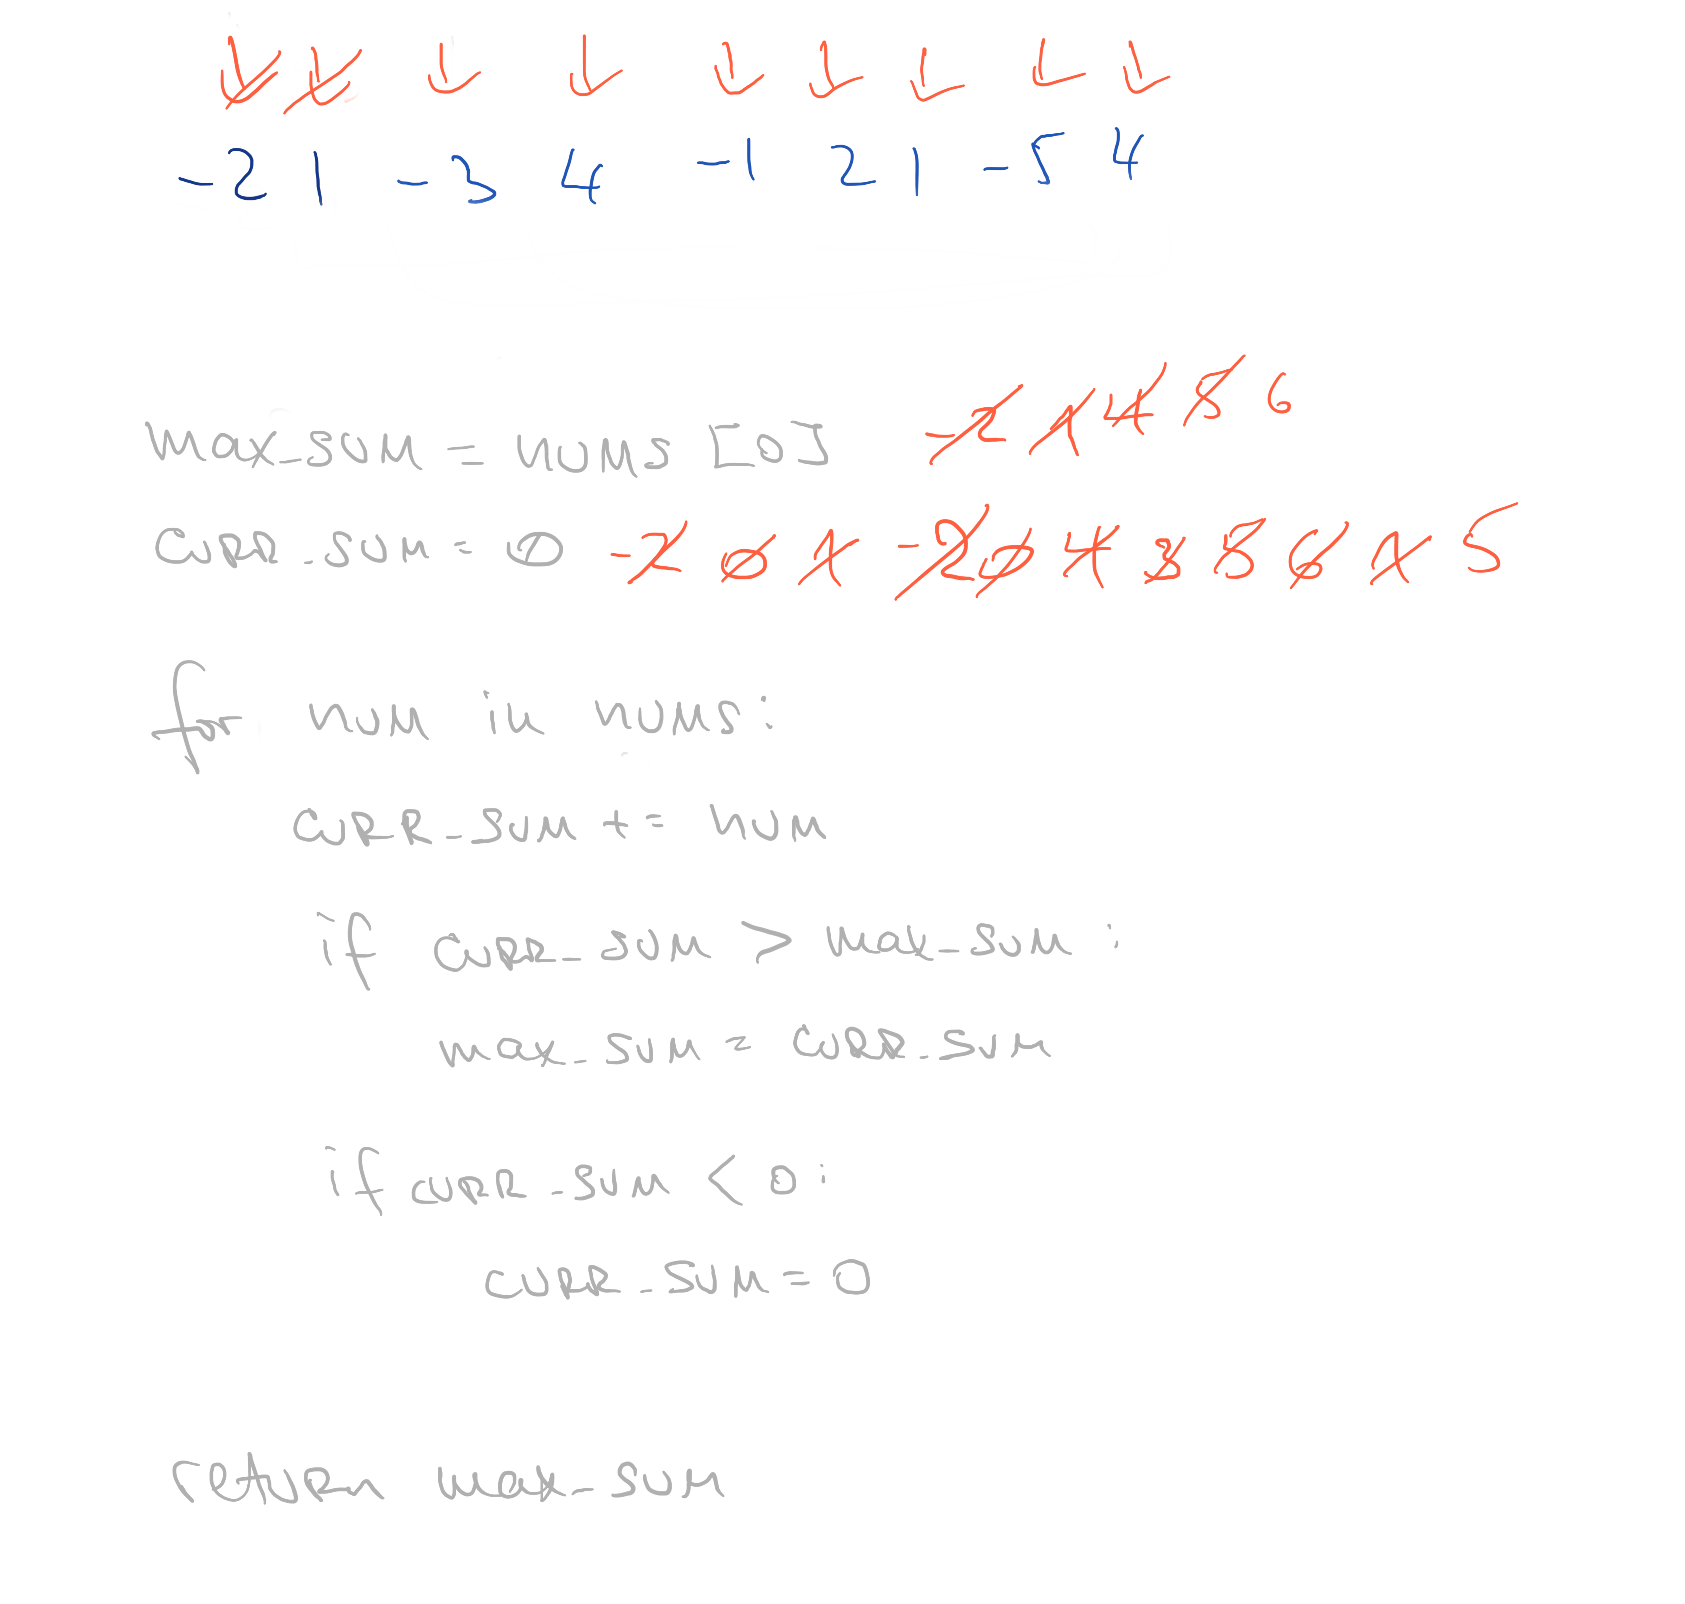 -2 1 -3 4 -1 2 1 -5 4
max_sum = nums [0] -2 1 4 5 6
curr_sum = 0 -2 0 1 -2 0 4 3 5 6 1 5
for num in nums:
curr_sum += num
if curr_sum > max_sum :
max_sum = curr_sum
if curr_sum < 0:
curr_sum = 0
return max_sum